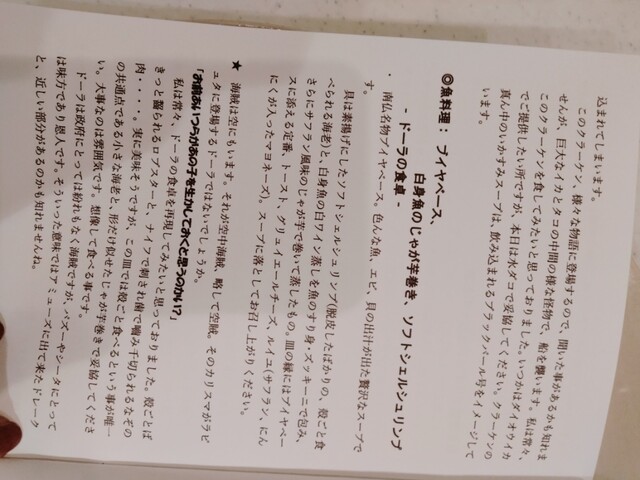 込まれてしまいます。
このクラーケン、様々な物語に登場するので、聞いた事があるかも知れま
せんが、巨大なイカとタコの中間の様な怪物で、船を襲います。私は常々、
このクラーケンを食してみたいと思っておりました。いつかはダイオウイカ
でご提供したい所ですが、本日は水ダコで妥協してください。クラーケンの
真ん中のいかすみスープは、飲み込まれるブラックパール号をイメージして
います。
◎魚料理： ブイヤベース、
白身魚のじゃが芋巻き、ソフトシェルシュリンプ
- ドーラの食卓 -
・ 南仏名物ブイヤベース。色んな魚、エビ、貝の出汁が出た贅沢なスープで
す。
具は素揚げにしたソフトシェルシュリンプ(脱皮したばかりの、殻ごと食
べられる海老)と、白身魚の白ワイン蒸しを魚のすり身・ズッキーニで包み、
さらにサフラン風味のじゃが芋で巻いて蒸したもの。皿の縁にはブイヤベー
スに添える定番、トースト、グリュイエールチーズ、ルイユ(サフラン、にん
にくが入ったマヨネーズ)。スープに落としてお召し上がりください。
★ 海賊は空にもいます。それが空中海賊、略して空賊。そのカリスマがラピ
ュタに登場するドーラではないでしょうか。
「お前あいつらがあの子を生かしておくと思うのかい?」
私は常々、ドーラの食卓を再現してみたいと思っておりました。殻ごとば
きっと齧られるロブスターと、ナイフで刺され歯で噛み千切られるなぞの
肉・・・・。実に美味そうですが、この皿では殻ごと食べるという事が唯一
の共通点である小さな海老と、形だけ似せたじゃが芋巻きで妥協してくださ
い。大事なのは雰囲気です。想像して食べる事です。
ドーラは政府にとっては紛れもなく海賊ですが、パズーやシータにとって
は味方であり恩人です。そういった意味では、ミューズに出て来たドレーク
と、近しい部分があるのかも知れませんね。